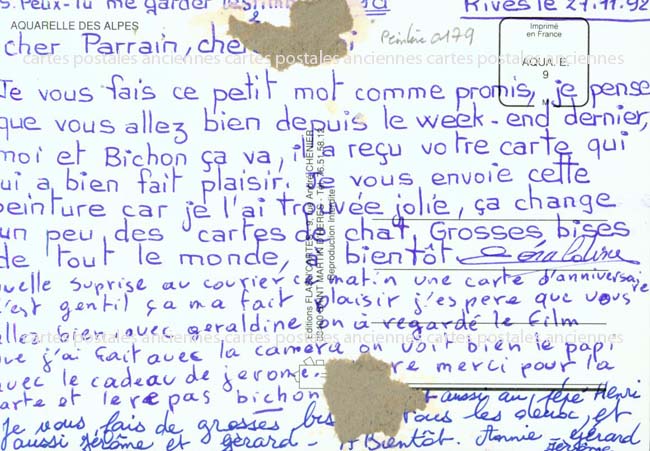 S. Peux-tu me garder les timbres
Rives le 27.11.92
AQUARELLE DES ALPES
Imprimé
en France
AQUA. E.
9
M
cher Parrain, cher
Peintre a179
cartes postales anciennes cartes postales anciennes cartes postales anciennes
Je vous fais ce petit mot comme promis, je pense
que vous allez bien depuis le week-end dernier,
moi et Bichon ça va, il a reçu votre carte qui
lui a bien fait plaisir. Je vous envoie cette
peinture car je l'ai trouvée jolie, ça change
un peu des cartes de chat, Grosses bises
de tout le monde, à bientôt Géraldine
Editions FLASH'CARTES - 9, rue André CHENIER
38400 SAINT MARTIN D'HERES - Tél. 76.51.58.13
Reproduction Interdite
quelle suprise au courier ce matin une carte d'anniversaire
c'est gentil ça ma fait plaisir j'espere que vous
allez bien avec geraldine on à regardé le film
cartes postales anciennes cartes postales anciennes cartes postales anciennes
que j'ai fait avec la camera on voit bien le papi
avec le cadeau de jerome. merci pour la
carte et le repas bichon
aussi au pépé Henri
Je vous fais de grosses bises tous les deux, et
aussi Jérôme et Gérard - A Bientôt. Annie Gérard
Jérôme